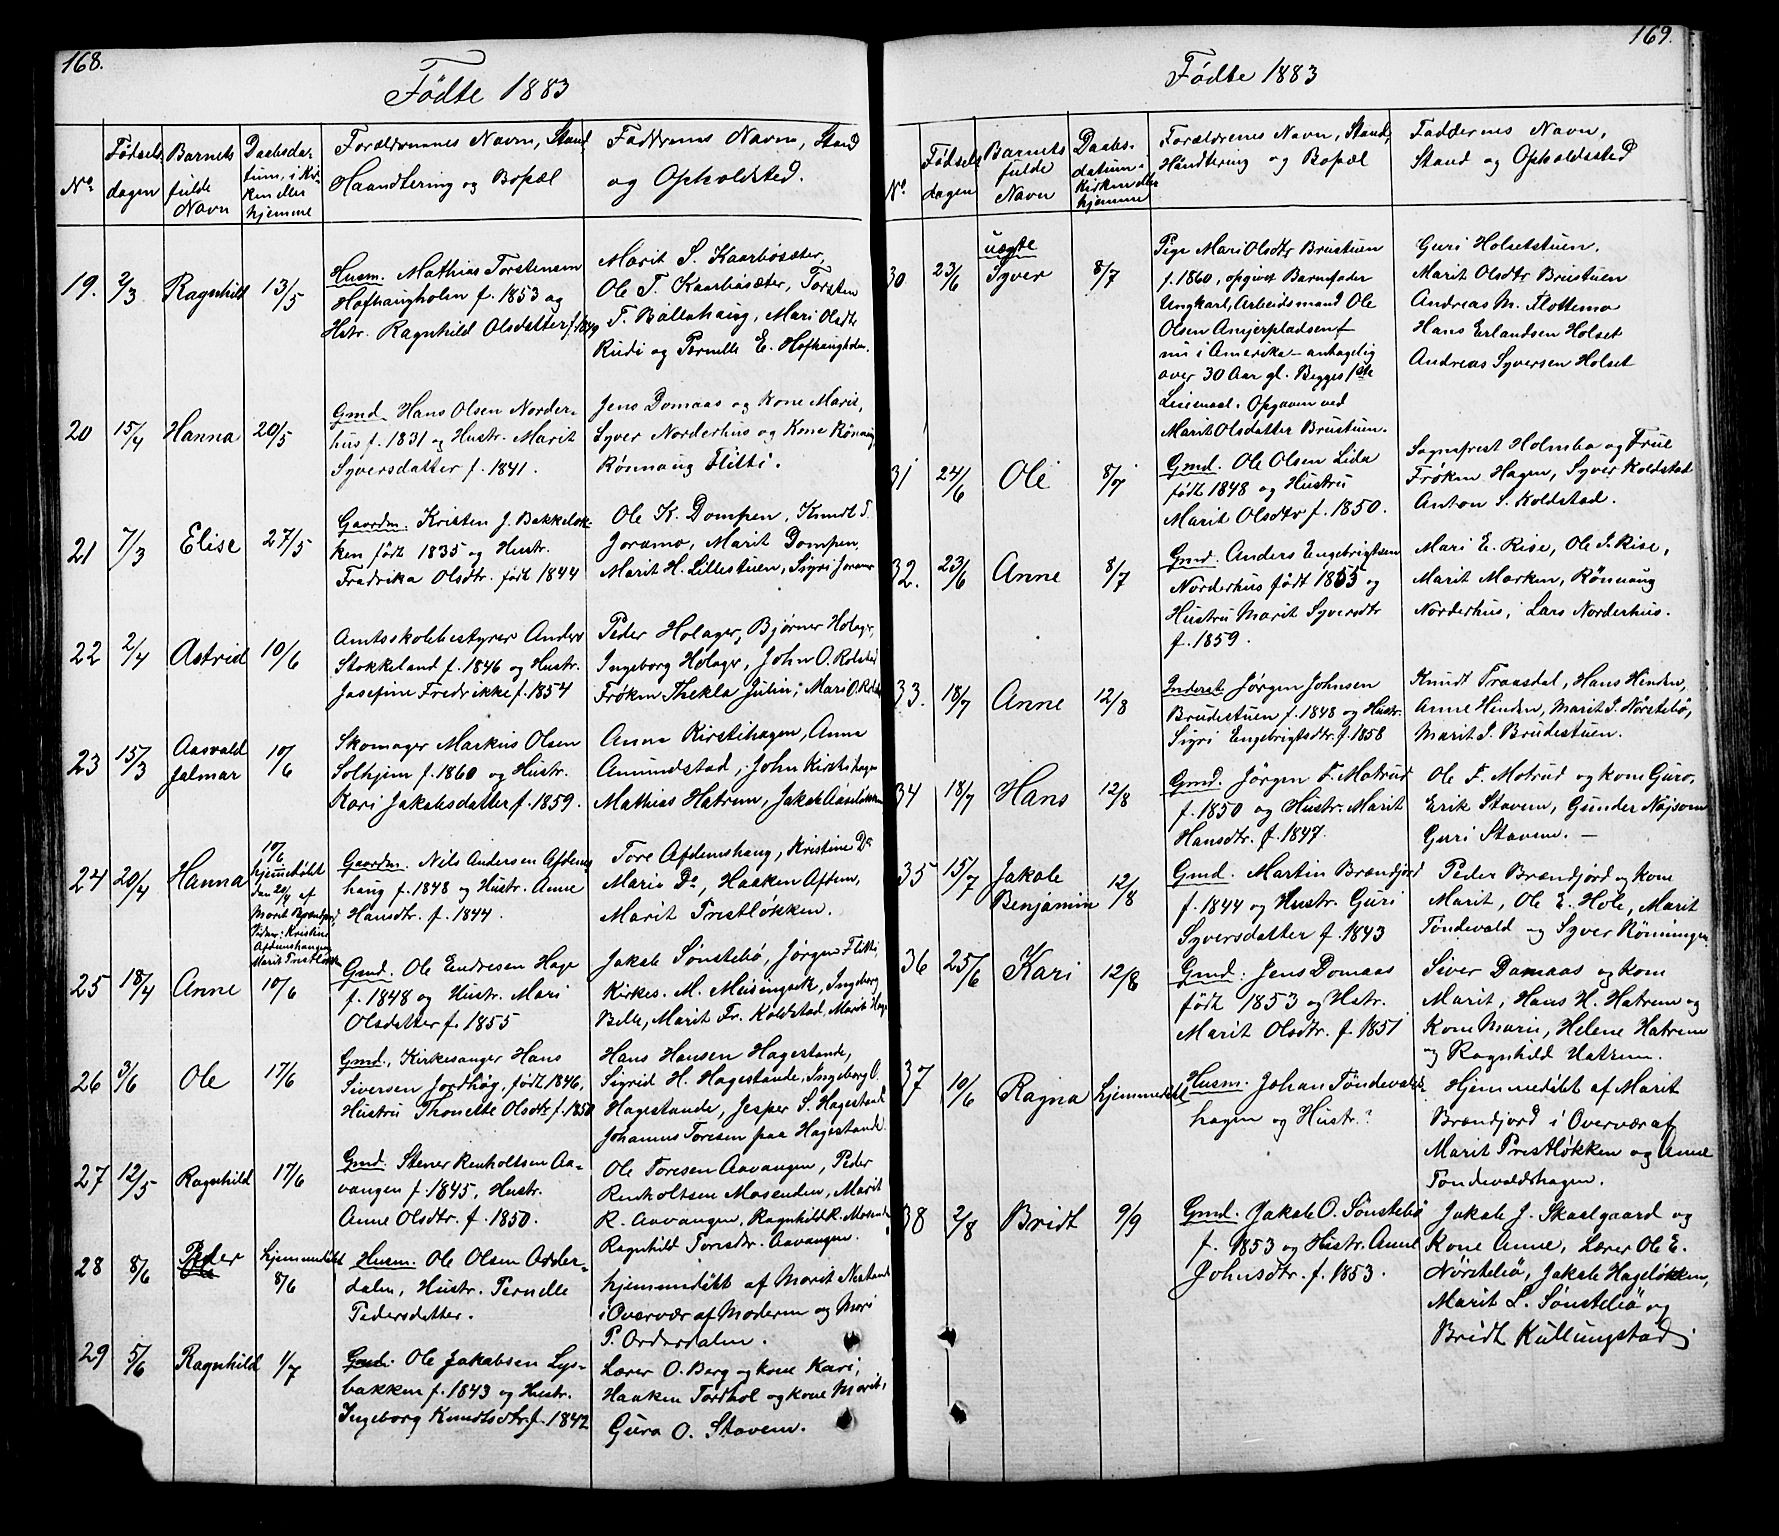 168.
Fødte 1883
No.
Fødsels
dagen
Barnets
fulde
Navn
Daabsda-
tum, i Kir-
ken eller
hjemme
Forældrenes Navn, Stand,
Haandtering og Bopæl
Faddernes Navn, Stand
og Opholdsted.
19.
2/3
Ragnhild
13/5
Husm. Mathias Torstensen
Hofhaugholen f. 1853 og
Hstr. Ragnhild Olsdatter f. 1849
Marit S. Kaarbøsæter,
Ole T. Kaarbøsæter, Torsten
T. Ballahaug, Mari Olsdtr
Rudi og Pernille E. Hofhaugholen.
20
15/4
Hanna
20/5
Gmd. Hans Olsen Norder-
hus f. 1831 og Hustr. Marit
Syversdatter f. 1841.
Jens Domaas og Kone Marie,
Syver Norderhus og Kone Rønnaug
Rønnaug Flitti.
21
7/3
Elise
27/5
Gaardm. Kristen J. Bakkeløk-
ken født 1835 og Hustr.
Fredrika Olsdtr. født 1844
Ole K. Dompen, Knudt T.
Joramo, Marit Dompen,
Marit H. Lillestuen, Sigri Joramo
22
2/4
Astrid
10/6
Amtsskolebestyrer Anders
Stokkeland f. 1846 og Hustr.
Josefine Fredrikke f. 1854
Peder Holager, Bjørner Holager,
Ingeborg Holager, John O. Kolstad
Frøken Thekla Julin; Mari O. Kolstad
23
15/3
Aasvald
Jalmar
10/6
Skomager Markus Olsen
Solhjem f. 1860 og Hustr.
Kari Jakobsdatter f. 1859.
Anne Kirstihagen, Anne
Amundstad, John Kirstihagen
Mathias Hatrem, Jakob
24
20/4
Hanna
10/6
hjemmedøbt
den 20/4 af
Marit Brændjord,
Vidner: Kristine
Afdemshaugen
Marit Prestløkken
Gaardm. Nils Andersen Afdems-
haug f. 1848 og Hustr. Anne
Hansdtr. f. 1844.
Tore Afdemshaug, Kristine Do
Marie Do, Haaken Afdem,
Marit Prestløkken.
25
18/4
Anne
10/6
Gmd. Ole Endresen Hage
f. 1848 og Hustr. Mari
Olsdatter f. 1855
Jakob Sønstebø, Jørgen Flitti,
Kirkes. M. Meisingseth, Ingeborg
Belle, Marit Fr. Koldstad, Marit Hage
26
3/6
Ole
17/6
Gmd., Kirkesanger Hans
Siversen Jordhøg, født 1846,
Hustru Thonette Olsdtr f. 1850
Hans Hansen Hagestande,
Sigrid H. Hagestande, Ingeborg O.
Hagestande, Jesper S. Hagestand
Johannes Toresen paa Hagestande.
27
12/5
Ragnhild
17/6
Gmd. Stener Renholtsen Aa-
vangen f. 1845, Hustr.
Anne Olsdtr. f. 1850.
Ole Toresen Aavangen, Peder
Renholtsen Mosenden, Marit
R. Aavangen, Ragnhild R. Mosende
Ragnhild Toresdtr. Aavangen.
28
8/6
Peder
Ole
hjemmedøbt
8/6
Husm. Ole Olsen Order-
dalen, Hustr. Pernelle
Pedersdatter.
hjemmedøbt af Marit Nestande
i Overvær af Moderen og Mari
P. Orderdalen.
29
5/6
Ragnhild
1/7
Gmd. Ole Jakobsen Lys-
bakken f. 1843 og Hustr.
Ingeborg Knudtsdtr. f. 1842
Lærer O. Berg og kone Kari,
Haaken Tordhol og kone Marit,
Guro O. Stavem.
169.
Fødte 1883
No.
Fødsels
dagen
Barnets
fulde
Navn
Daabs-
datum i
Kirken eller
hjemme
Forældrenes Navn, Stand,
Håndtering og Bopæl
Faddernes Navn,
Stand og Opholdssted
30
23/6
uægte
Syver
8/7
Pige Mari Olsdtr Brustuen
f. 1860, opgivet Barnefader
Ungkarl, Arbeidsmand Ole
Olsen Angerpladsen f
nu i Amerika – antagelig
over 30 Aar gl. Begges 1ste
Leiemaal. Opgaven ved
Marit Olsdatter Brustuen.
Guri Holsetstuen.
Marit Olsdtr Brustuen
Andreas M. Flottemo
Hans Erlandsen Holset
Andreas Syversen Holset
31
24/6
Ole
8/7
Gmd. Ole Olsen Lide
født 1848 og Hustru
Marit Olsdtr f. 1850.
Sognprest Holmbo og Frue
Frøken Hagen, Syver Koldstad
Anton S. Koldstad.
32.
23/6
Anne
8/7
Gmd. Anders Engebrigtsen
Norderhus født 1855 og
Hustru Marit Syversdtr
f. 1859.
Mari E. Rise, Ole S. Rise,
Marit Marken, Rønnaug
Norderhus, Lars Norderhus.
33.
18/7
Anne
12/8
Inderst Jørgen Johnsen
Brudestuen f. 1848 og Hustr.
Sigri Engebrigtsdtr. f. 1858
Knudt Traasdal, Hans Hinden,
Anne Hinden, Marit S. Nørstebø,
Marit S. Brudestuen.
34
18/7
Hans
12/8
Gmd. Jørgen F. Motrud
f. 1850 og Hustr. Marit
Hansdtr. f. 1847.
Ole F. Motrud og kone Guro,
Erik Stavem, Gunder Nøjsom
Guri Stavem. –
35
15/7
Jakob
Benjamin
12/8
Gmd. Martin Brændjord
f. 1844 og Hustr. Guri
Syversdatter f. 1843
Peder Brændjord og kone
Marit, Ole E. Hole, Marit
Tøndevald og Syver Rønningen
36
25/6
Kari
12/8
Gmd. Jens Domaas
født 1853 og Hstr.
Marit Olsdtr. f. 1851
Siver Domaas og kone
Marit, Hans H. Hatrem og
Kone Marie, Helene Hatrem
og Ragnhild Hatrem.
37
10/6
Ragna
hjemmedøbt
Husm. Johan Tøndevalds-
hagen og Hustr.?
Hjemmedøbt af Marit
Brændjord i Overvær af
Marit Prestløkken og Anne
Tøndevaldshagen.
38
2/8
Bridt
9/9
Gmd. Jakob O. Sønstebø
f. 1853 og Hustr. Anne
Johnsdtr. f. 1853.
Jakob J. Skaalgaard og
Kone Anne, Lærer Ole E.
Nørstebø, Jakob Hageløkken,
Marit L. Sønstebø og
Bridt Kullungstad